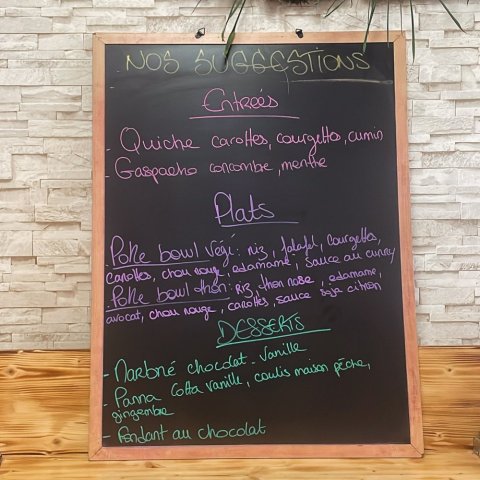 NOS SUGGESTIONS
Entreés
- Quiche carottes, courgettes, cumin
- Gaspacho concombe, menthe
Plats
. Poke bowl végé: riz, falafel, courgettes,
carottes, chou rouge, edamame, sauce au curry
. Poke bowl thon: Riz, thon rose, edamame,
avocat, chou rouge, carottes, sauce soja citron
DESSERTS
- Marbré chocolat - Vanille
- Panna Cotta vanille, coulis maison pêche,
gingembre
- Fondant au chocolat